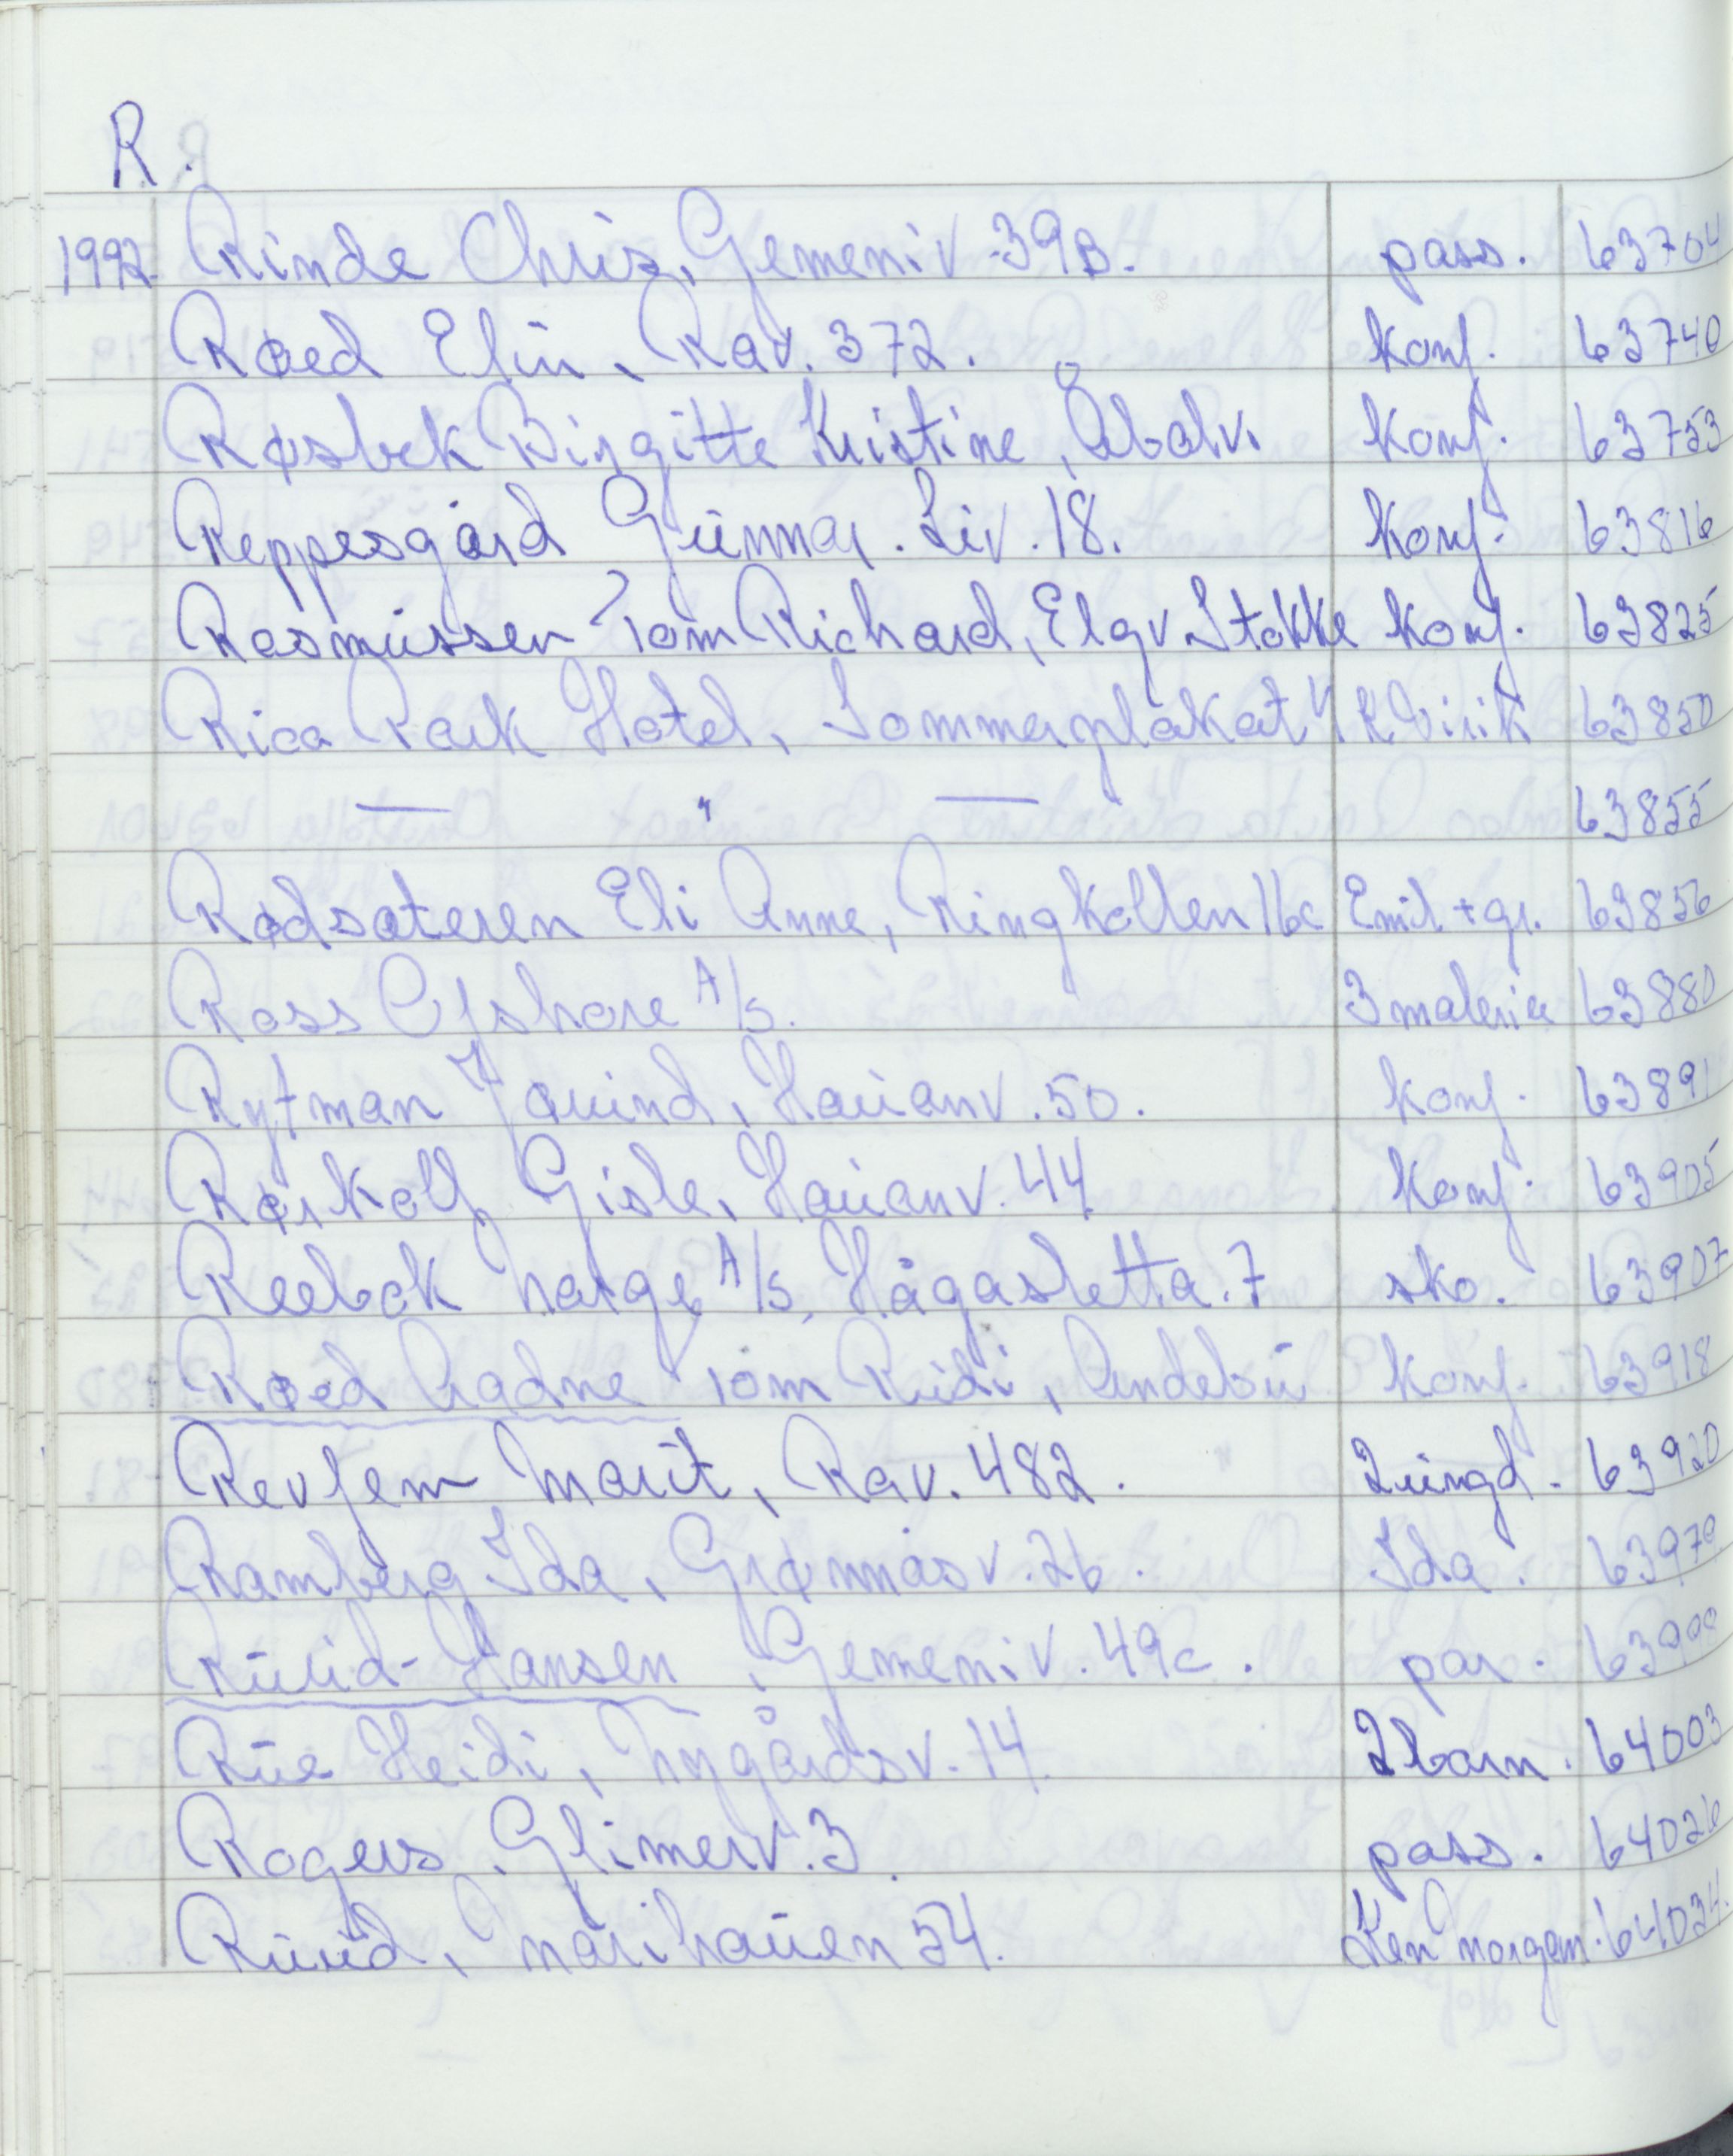 R.
1992 Rinde Chris, Gemeniv. 39B. pass. 63704
Røed Elin, Rav. 372. konf. 63740
Røsbek Birgitte Kristine, Åbolv. konf. 63753
Reppesgård Gunnar. Liv. 18. konf. 63816
Rasmussen Tom Richard, Elgv. Stokke konf. 63825
Rica Park Hotel, Sommerplakat 63850
— " — 63855
Rødsæteren Eli Anne, Ringkollen 16c Emil + gr. 63856
Ross Ofshore A/s. 3 malerier 63880
Rytman Øyvind, Hauanv. 50. konf. 63891
Rørkoll Gisle, Hauanv. 44 konf. 63905
Reebok Norge A/s, Hågasletta. 7 sko. 63907
Røed Aadne Tom Rudi, Andebu konf. 63918
Revfem Marit, Rav. 482. 2 ungd. 63920
Ramberg Ida, Grønnåsv. 26. Ida. 63970
Ruud-Hansen, Gemeniv. 49c. par.
Rue Heidi, Nygårdsv. 14. 2 barn. 64003
Rogers, Glimmerv. 3. pass. 64026
Ruud, Marihauen 54. 64034.